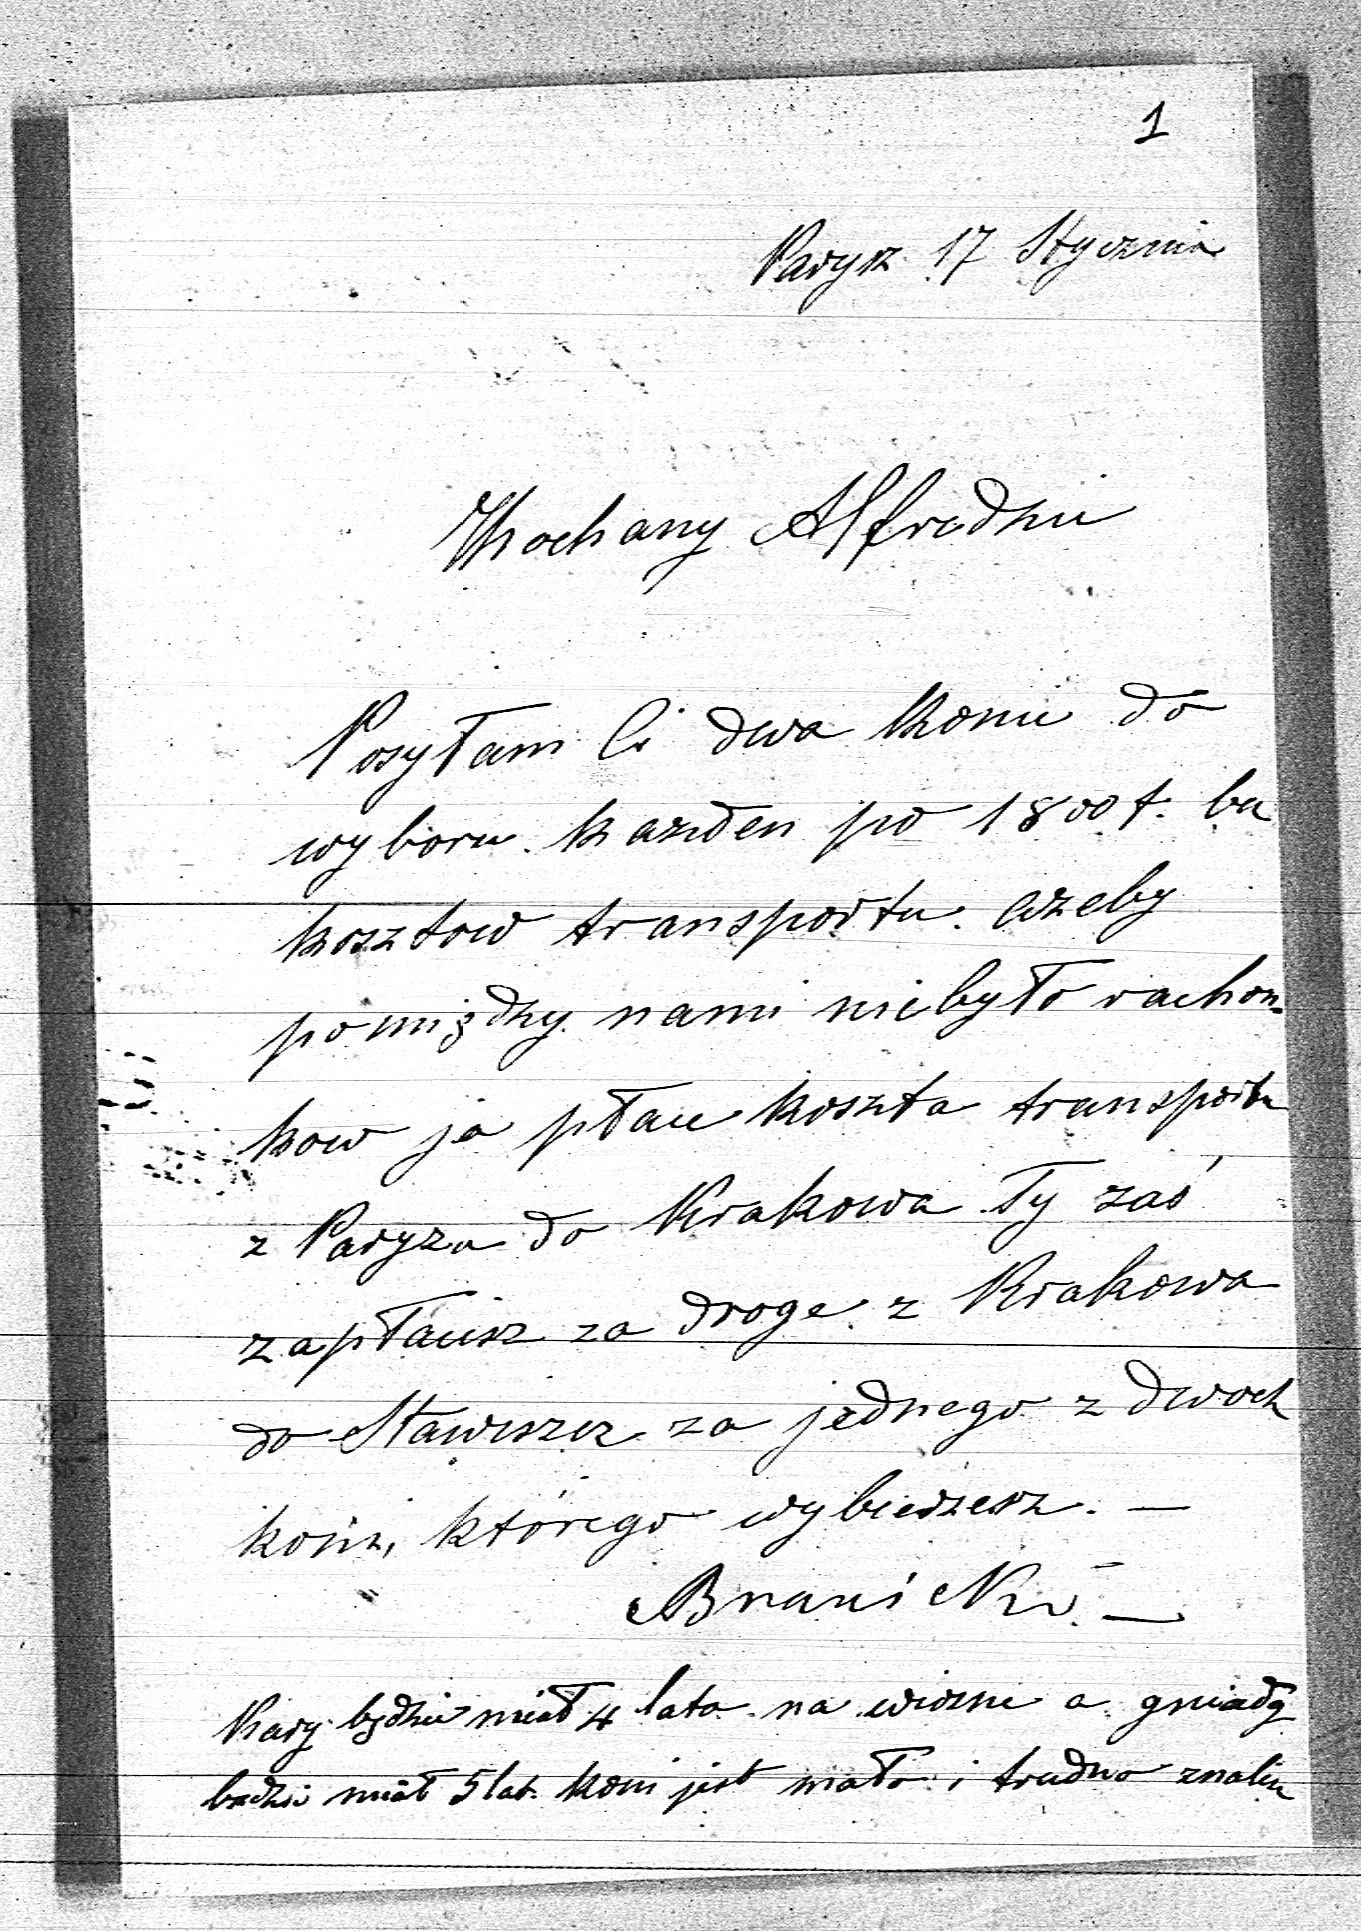 1
Paryz 17 Stycznia
Kochany Alfredzie
Posyłam Ci dwa konie do
wyboru. każden po 1800 f. bez
kosztow transportu. ażeby
pomiędzy nami niebyło rachon-
kow ja płace koszta transportu
z Paryza do Krakowa Ty zaś
zapłacisz za droge z Krakowa
do Stawiszcz za jednego z dwoch
koni, którego wybierzesz. —
Branicki —
Kary będzie miał 4 lata na wiosne a gniady
bedzie miał 5 lat. koni jest mało i trudno